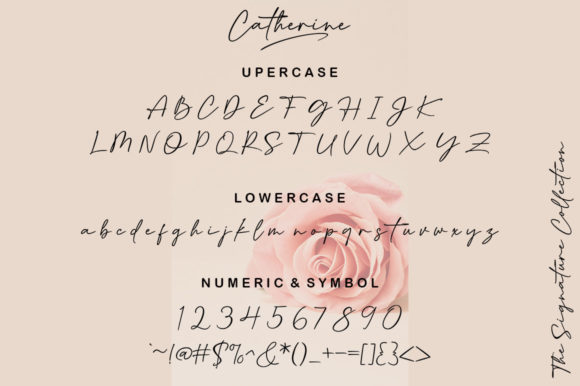 Catherine
UPERCASE
ABCDEFGHIJK
LMNOPQRSTUVWXYZ
LOWERCASE
abcdefghijklmnopqrstuvwxyz
NUMERIC & SYMBOL
1234567890
`~!@#$%^&*()_+-=[]{}<>
The Signature Collection